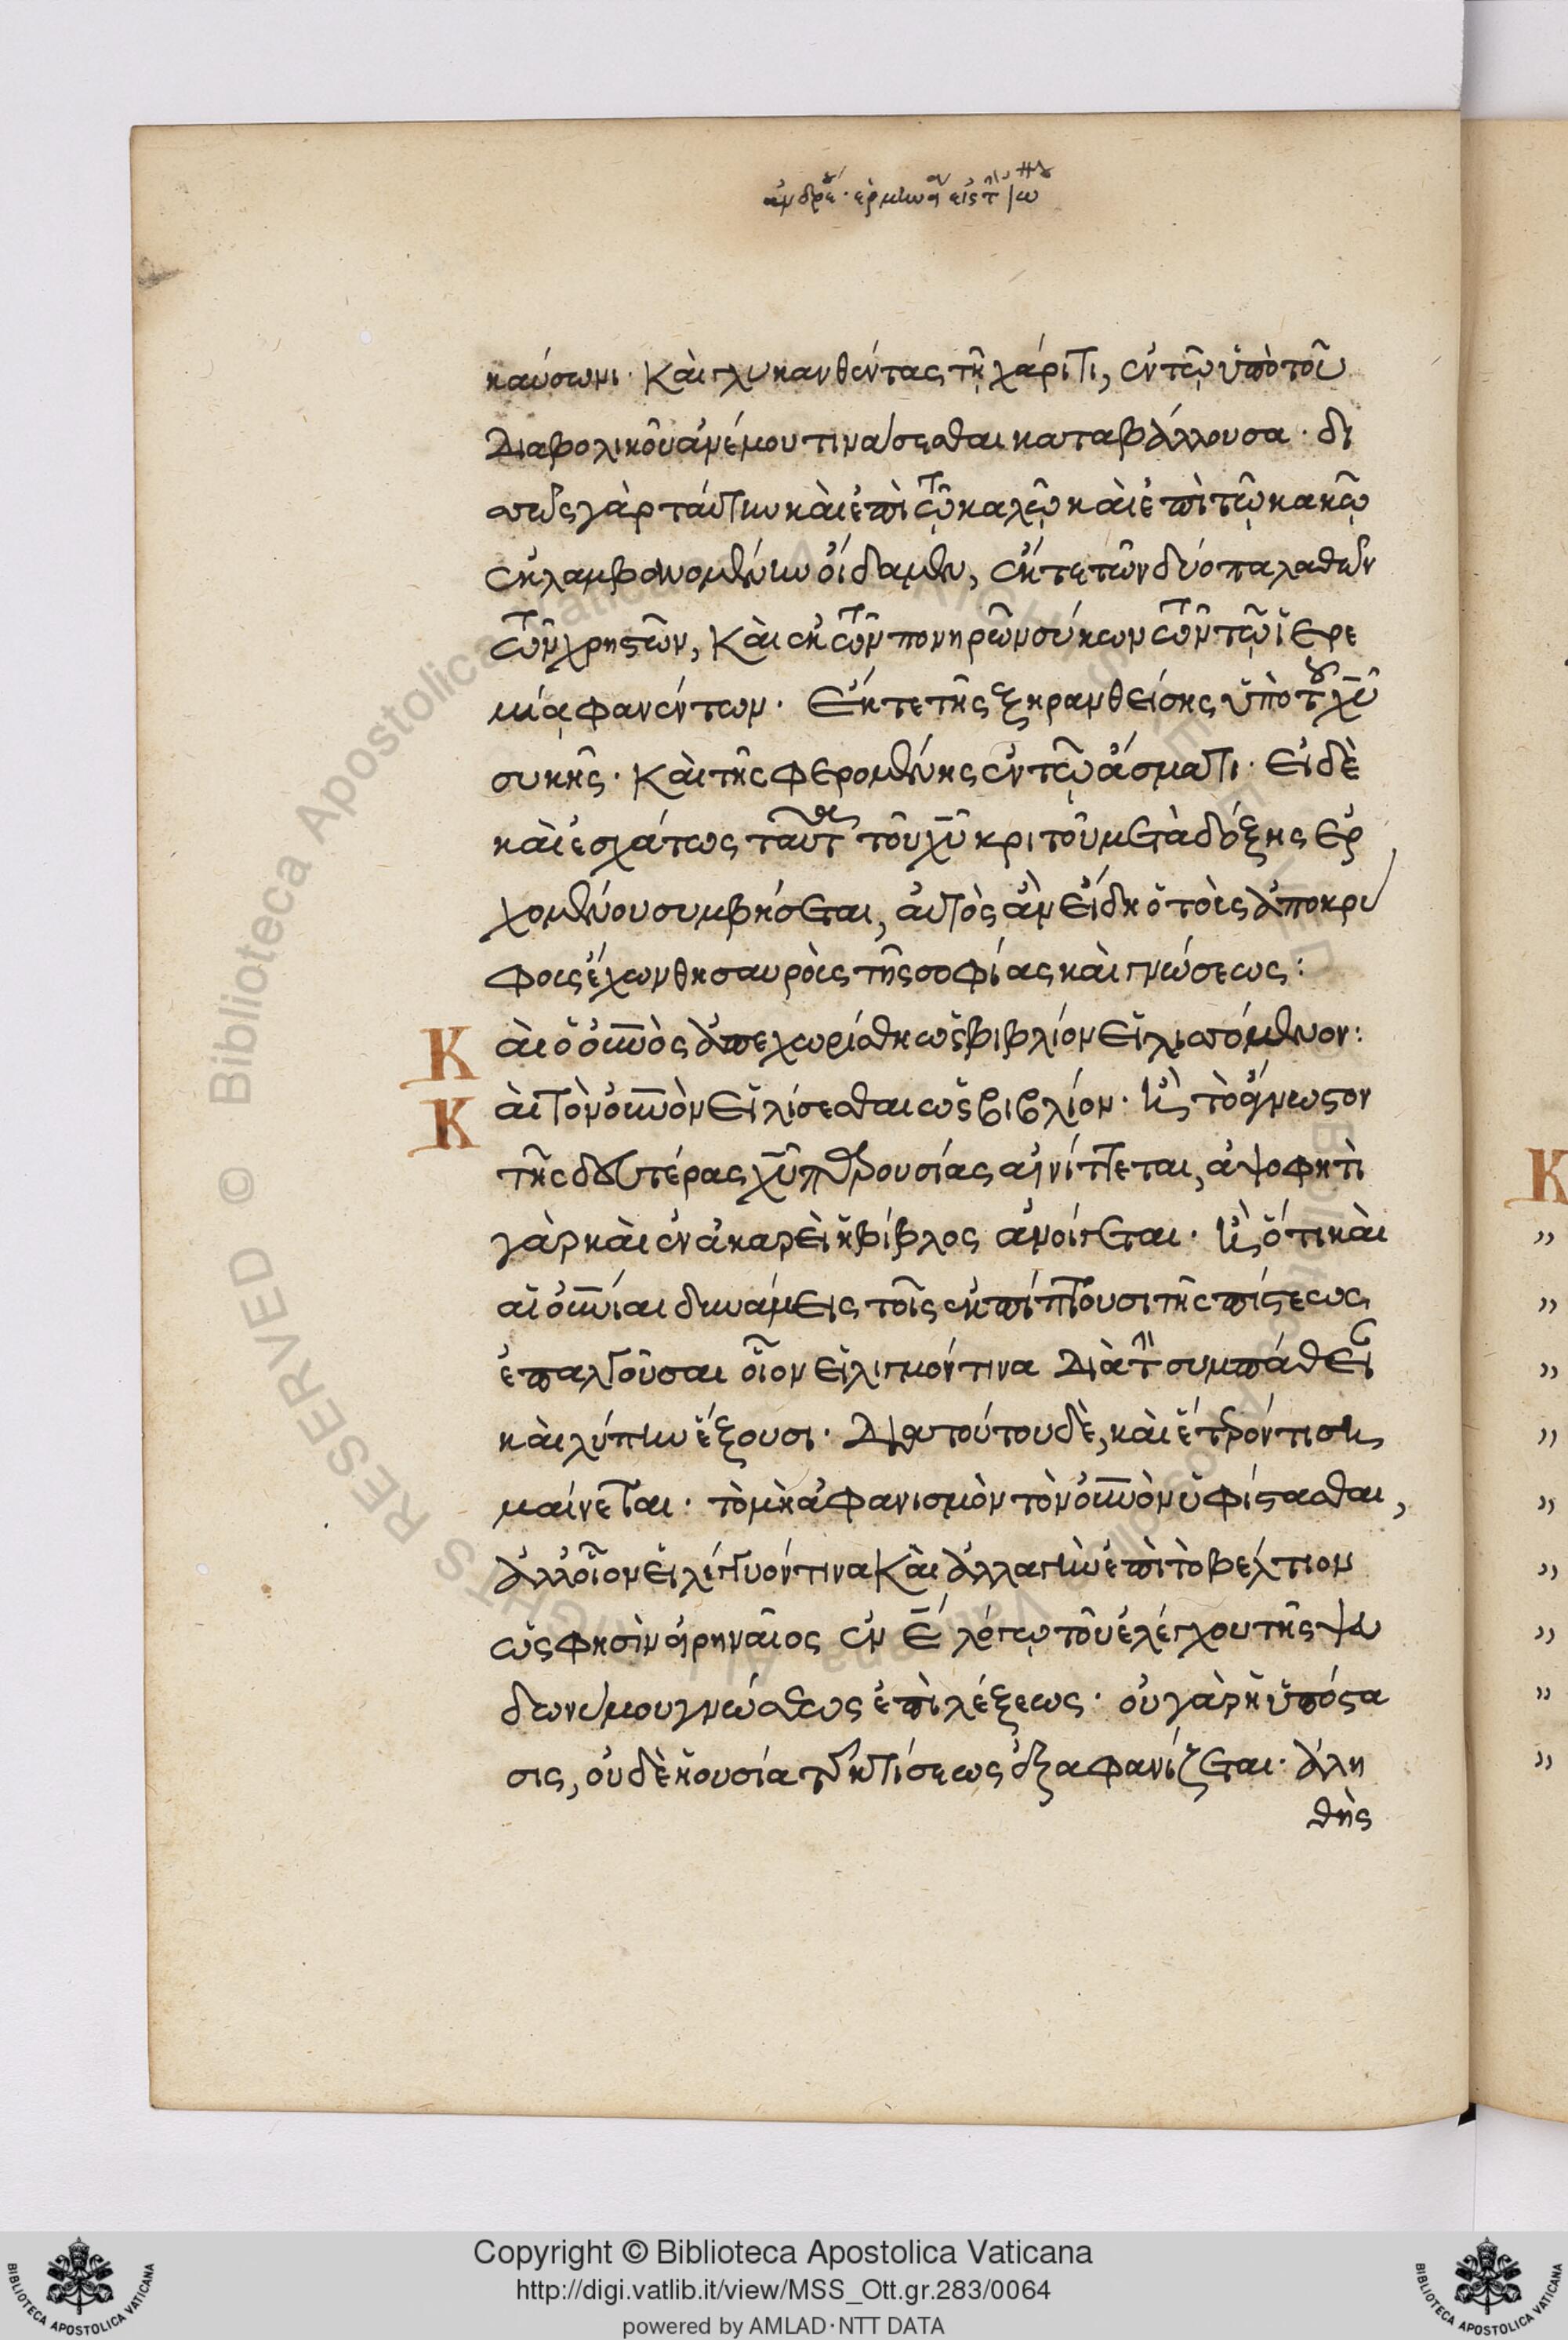 καύσωνι· Καὶ γλυκανθέντας τῇ χάριτι, ἐν τῷ ὑπὸ τοῦ
διαβολικοῦ ἀνέμου τινάσσεσθαι καταβάλλουσα· δι
ττῶς γὰρ ταύτην καὶ ἐπὶ τῷ καλῷ καὶ ἐπὶ τῷ κακῷ
ἐκλαμβανομένην οἴδαμεν, ἔκ τε τῶν δύο παλαθῶν
τῶν χρηστῶν, Καὶ ἐκ τῶν πονηρῶν σύκων τῶν τῷ ἱερε
μίᾳ φανέντων· Ἔκ τε τῆς ξηρανθείσης ὑπὸ τοῦ χῦ
συκῆς· Καὶ τῆς φερομένης ἐν τῷ ᾄσματι· Εἰ δὲ
καὶ ἐσχάτως ταῦτα τοῦ χῦ κριτοῦ μετὰ δόξης ἐρ
χομένου συμβήσεται, αὐτὸς ἂν εἴδη ὁ τοὺς ἀποκρύ
φους ἔχων θησαυροὺς τῆς σοφίας καὶ γνώσεως:
Καὶ ὁ οὐνὸς ἀπεχωρίσθη ὡς βιβλίον εἱλισσόμενον:
Καὶ τὸν οὐνὸν εἱλίσεσθαι ὡς βιβλίον· ἢ τὸ ἄγνωστον
τῆς δευτέρας χῦ παρουσίας αἰνίττεται, ἀψοφητὶ
γὰρ καὶ ἐν ἀκαρεῖ ἡ βίβλος ἀνοίγεται· ἢ ὅτι καὶ
αἱ οὐνίαι δυνάμεις τοῖς ἐκπίπτουσι τῆς πίστεως
ἐπαλγοῦσαι οἷον εἱλιγμόν τινα διὰ τὴν συμπάθειαν
καὶ λύπην ἕξουσι· Διὰ τούτου δὲ, καὶ ἕτερόν τι ση
μαίνεται· τὸ μὴ ἀφανισμὸν τὸν οὐνὸν ὑφίστασθαι,
ἀλλ' οἷον εἱλιγμόν τινα Καὶ ἀλλαγὴν ἐπὶ τὸ βέλτιον
ὥς φησὶν εἰρηναῖος ἐν Ε̄ λόγῳ τοῦ ἐλέγχου τῆς ψευ
δωνύμου γνώσεως ἐπὶ λέξεως· οὐ γὰρ ἡ ὑπόστα
σις, οὐδὲ ἡ οὐσία τῆς κτίσεως ἐξαφανίζεται· ἀλη
θὴς
Copyright © Biblioteca Apostolica Vaticana
http://digi.vatlib.it/view/MSS_Ott.gr.283/0064
powered by AMLAD·NTT DATA